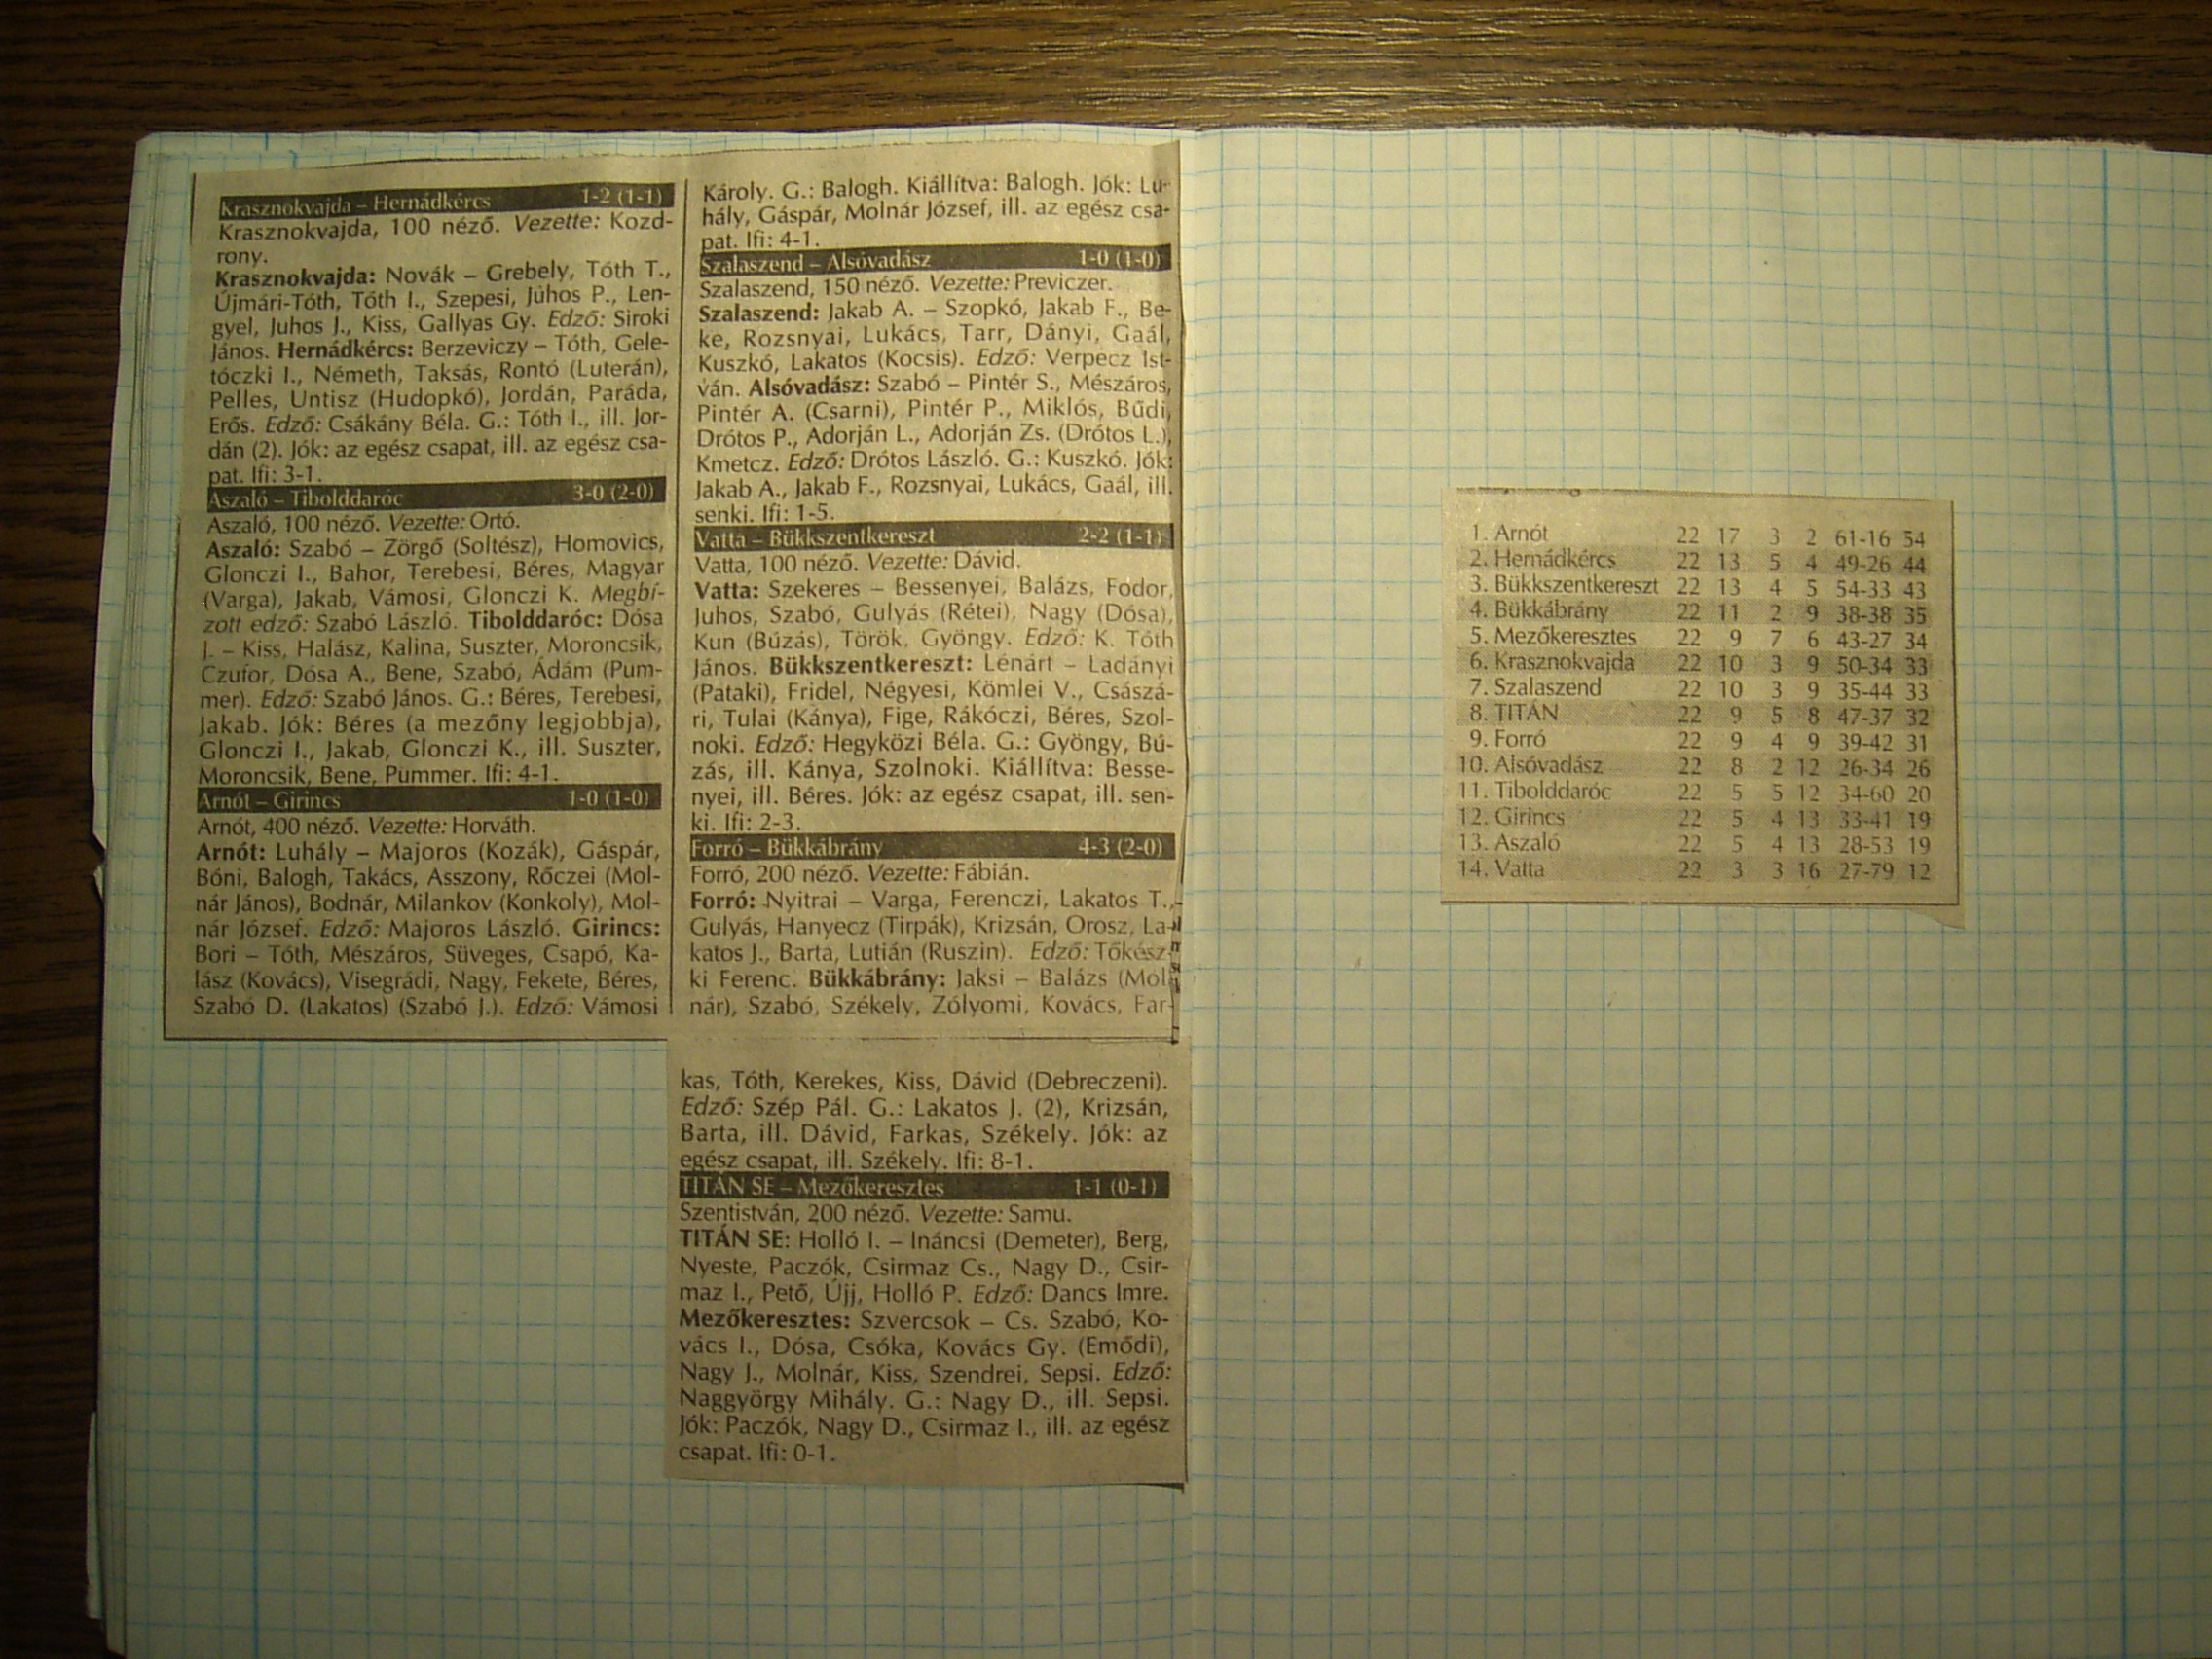 Krasznokvajda – Hernádkércs 1-2 (1-1)
Krasznokvajda, 100 néző. Vezette: Kozd-
rony.
Krasznokvajda: Novák – Grebely, Tóth T.,
Újmári-Tóth, Tóth I., Szepesi, Juhos P., Len-
gyel, Juhos J., Kiss, Gallyas Gy. Edző: Siroki
János. Hernádkércs: Berzeviczy – Tóth, Gele-
tóczki I., Németh, Taksás, Rontó (Luterán),
Pelles, Untisz (Hudopkó), Jordán, Paráda,
Erős. Edző: Csákány Béla. G.: Tóth I., ill. Jor-
dán (2). Jók: az egész csapat, ill. az egész csa-
pat. Ifi: 3-1.
Aszaló – Tibolddaróc 3-0 (2-0)
Aszaló, 100 néző. Vezette: Ortó.
Aszaló: Szabó – Zörgő (Soltész), Homovics,
Glonczi I., Bahor, Terebesi, Béres, Magyar
(Varga), Jakab, Vámosi, Glonczi K. Megbí-
zott edző: Szabó László. Tibolddaróc: Dósa
J. – Kiss, Halász, Kalina, Suszter, Moroncsik,
Czufor, Dósa A., Bene, Szabó, Ádám (Pum-
mer). Edző: Szabó János. G.: Béres, Terebesi,
Jakab. Jók: Béres (a mezőny legjobbja),
Glonczi I., Jakab, Glonczi K., ill. Suszter,
Moroncsik, Bene, Pummer. Ifi: 4-1.
Arnót – Girincs 1-0 (1-0)
Arnót, 400 néző. Vezette: Horváth.
Arnót: Luhály – Majoros (Kozák), Gáspár,
Bóni, Balogh, Takács, Asszony, Rőczei (Mol-
nár János), Bodnár, Milankov (Konkoly), Mol-
nár József. Edző: Majoros László. Girincs:
Bori – Tóth, Mészáros, Süveges, Csapó, Ka-
lász (Kovács), Visegrádi, Nagy, Fekete, Béres,
Szabó D. (Lakatos) (Szabó J.). Edző: Vámosi
Károly. G.: Balogh. Kiállítva: Balogh. Jók: Lu-
hály, Gáspár, Molnár József, ill. az egész csa-
pat. Ifi: 4-1.
Szalaszend – Alsóvadász 1-0 (1-0)
Szalaszend, 150 néző. Vezette: Previczer.
Szalaszend: Jakab A. – Szopkó, Jakab F., Be-
ke, Rozsnyai, Lukács, Tarr, Dányi, Gaál,
Kuszkó, Lakatos (Kocsis). Edző: Verpecz Ist-
ván. Alsóvadász: Szabó – Pintér S., Mészáros,
Pintér A. (Csarni), Pintér P., Miklós, Bűdi,
Drótos P., Adorján L., Adorján Zs. (Drótos L.),
Kmetcz. Edző: Drótos László. G.: Kuszkó. Jók:
Jakab A., Jakab F., Rozsnyai, Lukács, Gaál, ill.
senki. Ifi: 1-5.
Vatta – Bükkszentkereszt 2-2 (1-1)
Vatta, 100 néző. Vezette: Dávid.
Vatta: Szekeres – Bessenyei, Balázs, Fodor,
Juhos, Szabó, Gulyás (Rétei), Nagy (Dósa),
Kun (Búzás), Török, Gyöngy. Edző: K. Tóth
János. Bükkszentkereszt: Lénárt – Ladányi
(Pataki), Fridel, Négyesi, Kömlei V., Császá-
ri, Tulai (Kánya), Fige, Rákóczi, Béres, Szol-
noki. Edző: Hegyközi Béla. G.: Gyöngy, Bú-
zás, ill. Kánya, Szolnoki. Kiállítva: Besse-
nyei, ill. Béres. Jók: az egész csapat, ill. sen-
ki. Ifi: 2-3.
Forró – Bükkábrány 4-3 (2-0)
Forró, 200 néző. Vezette: Fábián.
Forró: Nyitrai – Varga, Ferenczi, Lakatos T.,
Gulyás, Hanyecz (Tirpák), Krizsán, Orosz, La-
katos J., Barta, Lutián (Ruszin). Edző: Tőkész-
ki Ferenc. Bükkábrány: Jaksi – Balázs (Mol-
nár), Szabó, Székely, Zólyomi, Kovács, Far-
kas, Tóth, Kerekes, Kiss, Dávid (Debreczeni).
Edző: Szép Pál. G.: Lakatos J. (2), Krizsán,
Barta, ill. Dávid, Farkas, Székely. Jók: az
egész csapat, ill. Székely. Ifi: 8-1.
TITÁN SE – Mezőkeresztes 1-1 (0-1)
Szentistván, 200 néző. Vezette: Samu.
TITÁN SE: Holló I. – Ináncsi (Demeter), Berg,
Nyeste, Paczók, Csirmaz Cs., Nagy D., Csir-
maz I., Pető, Újj, Holló P. Edző: Dancs Imre.
Mezőkeresztes: Szvercsok – Cs. Szabó, Ko-
vács I., Dósa, Csóka, Kovács Gy. (Emődi),
Nagy J., Molnár, Kiss, Szendrei, Sepsi. Edző:
Naggyörgy Mihály. G.: Nagy D., ill. Sepsi.
Jók: Paczók, Nagy D., Csirmaz I., ill. az egész
csapat. Ifi: 0-1.
1. Arnót 22 17 3 2 61-16 54
2. Hernádkércs 22 13 5 4 49-26 44
3. Bükkszentkereszt 22 13 4 5 54-33 43
4. Bükkábrány 22 11 2 9 38-38 35
5. Mezőkeresztes 22 9 7 6 43-27 34
6. Krasznokvajda 22 10 3 9 50-34 33
7. Szalaszend 22 10 3 9 35-44 33
8. TITÁN 22 9 5 8 47-37 32
9. Forró 22 9 4 9 39-42 31
10. Alsóvadász 22 8 2 12 26-34 26
11. Tibolddaróc 22 5 5 12 34-60 20
12. Girincs 22 5 4 13 33-41 19
13. Aszaló 22 5 4 13 28-53 19
14. Vatta 22 3 3 16 27-79 12